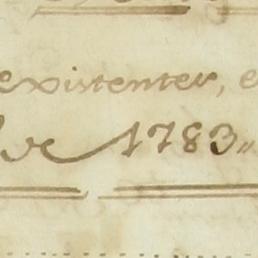 existenter, e
1783„